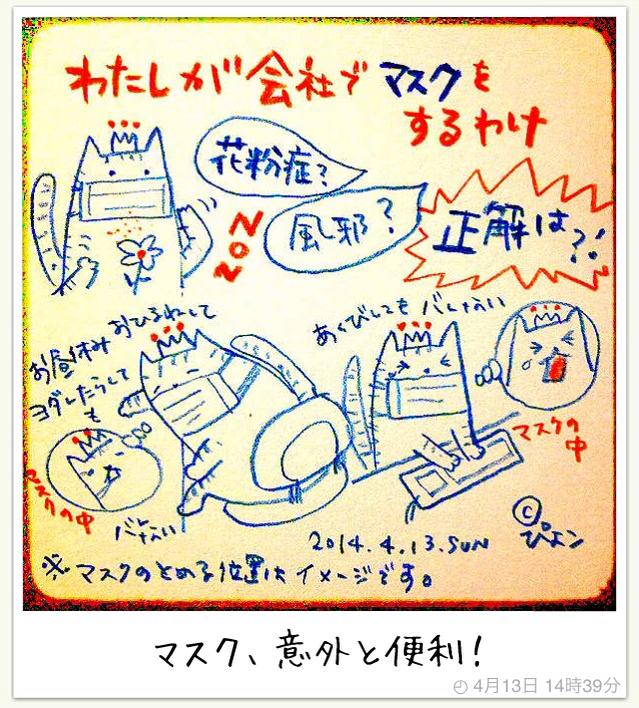 わたしが会社で マスクを
するわけ
花粉症?
風邪?
NON
正解は?!
お昼休み おひるねして
ヨダレたらして
も
バレない
マスクの中
あくびしても バレない
マスクの
中
2014.4.13.SUN
©ぴよン
※マスクのとめる位置はイメージです。
マスク、意外と便利!
4月13日 14時39分